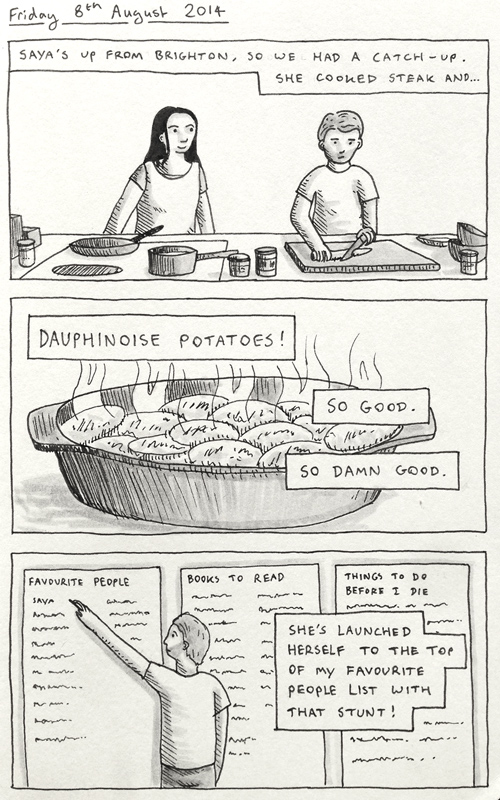 Friday 8th August 2014
SAYA'S UP FROM BRIGHTON, SO WE HAD A CATCH-UP.
SHE COOKED STEAK AND...
DAUPHINOISE POTATOES!
SO GOOD.
SO DAMN GOOD.
FAVOURITE PEOPLE
SAYA
BOOKS TO READ
THINGS TO DO
BEFORE I DIE
SHE'S LAUNCHED
HERSELF TO THE TOP
OF MY FAVOURITE
PEOPLE LIST WITH
THAT STUNT!